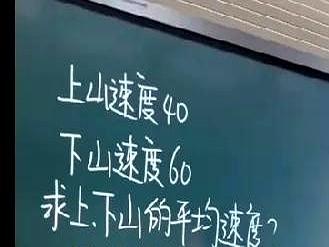 上山速度40
下山速度60
求上、下山的平均速度?